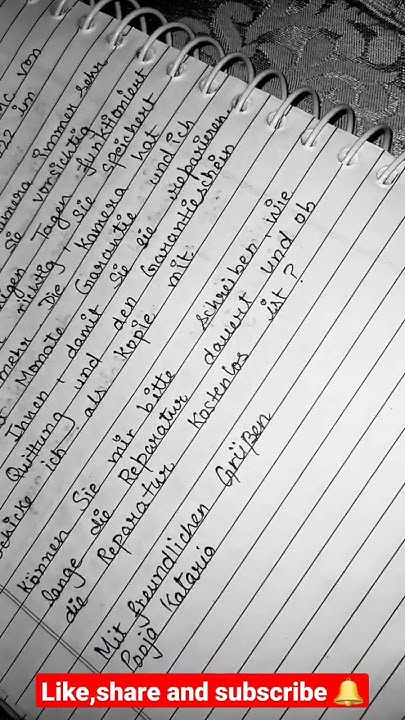 von
2022 im
immer sehr
Sie vorsichtig
Tagen funktioniert
richtig. Sie speichert
mehr. Die Kamera hat
Monate Garantie und ich
Ihnen, damit Sie sie reparieren.
Quittung und den Garantieschein
schicke ich als Kopie mit.
Können Sie mir bitte schreiben, wie
lange die Reparatur dauert und ob
die Reparatur kostenlos ist?
Mit freundlichen Grüßen
Pooja Kataria
Like,share and subscribe